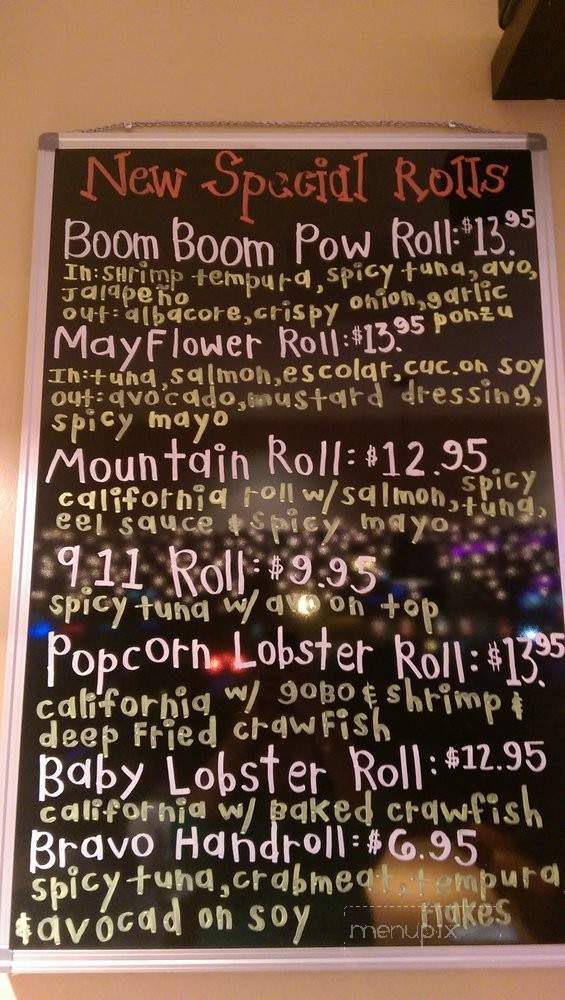 New Special Rolls
Boom Boom Pow Roll: $13.95
In: shrimp tempura, spicy tuna, avo,
jalapeño
out: albacore, crispy onion, garlic
ponzu
MayFlower Roll: $13.95
In: tuna, salmon, escolar, cuc. on soy
out: avocado, mustard dressing,
spicy mayo
Mountain Roll: $12.95
california roll w/ salmon, spicy
tuna,
eel sauce & spicy mayo
911 Roll: $9.95
spicy tuna w/ avo on top
Popcorn Lobster Roll: $13.95
california w/ gobo & shrimp &
deep Fried crawFish
Baby Lobster Roll: $12.95
california w/ Baked crawfish
Bravo Handroll: $6.95
spicy tuna, crabmeat, tempura
flakes
& avocad on soy
menupix